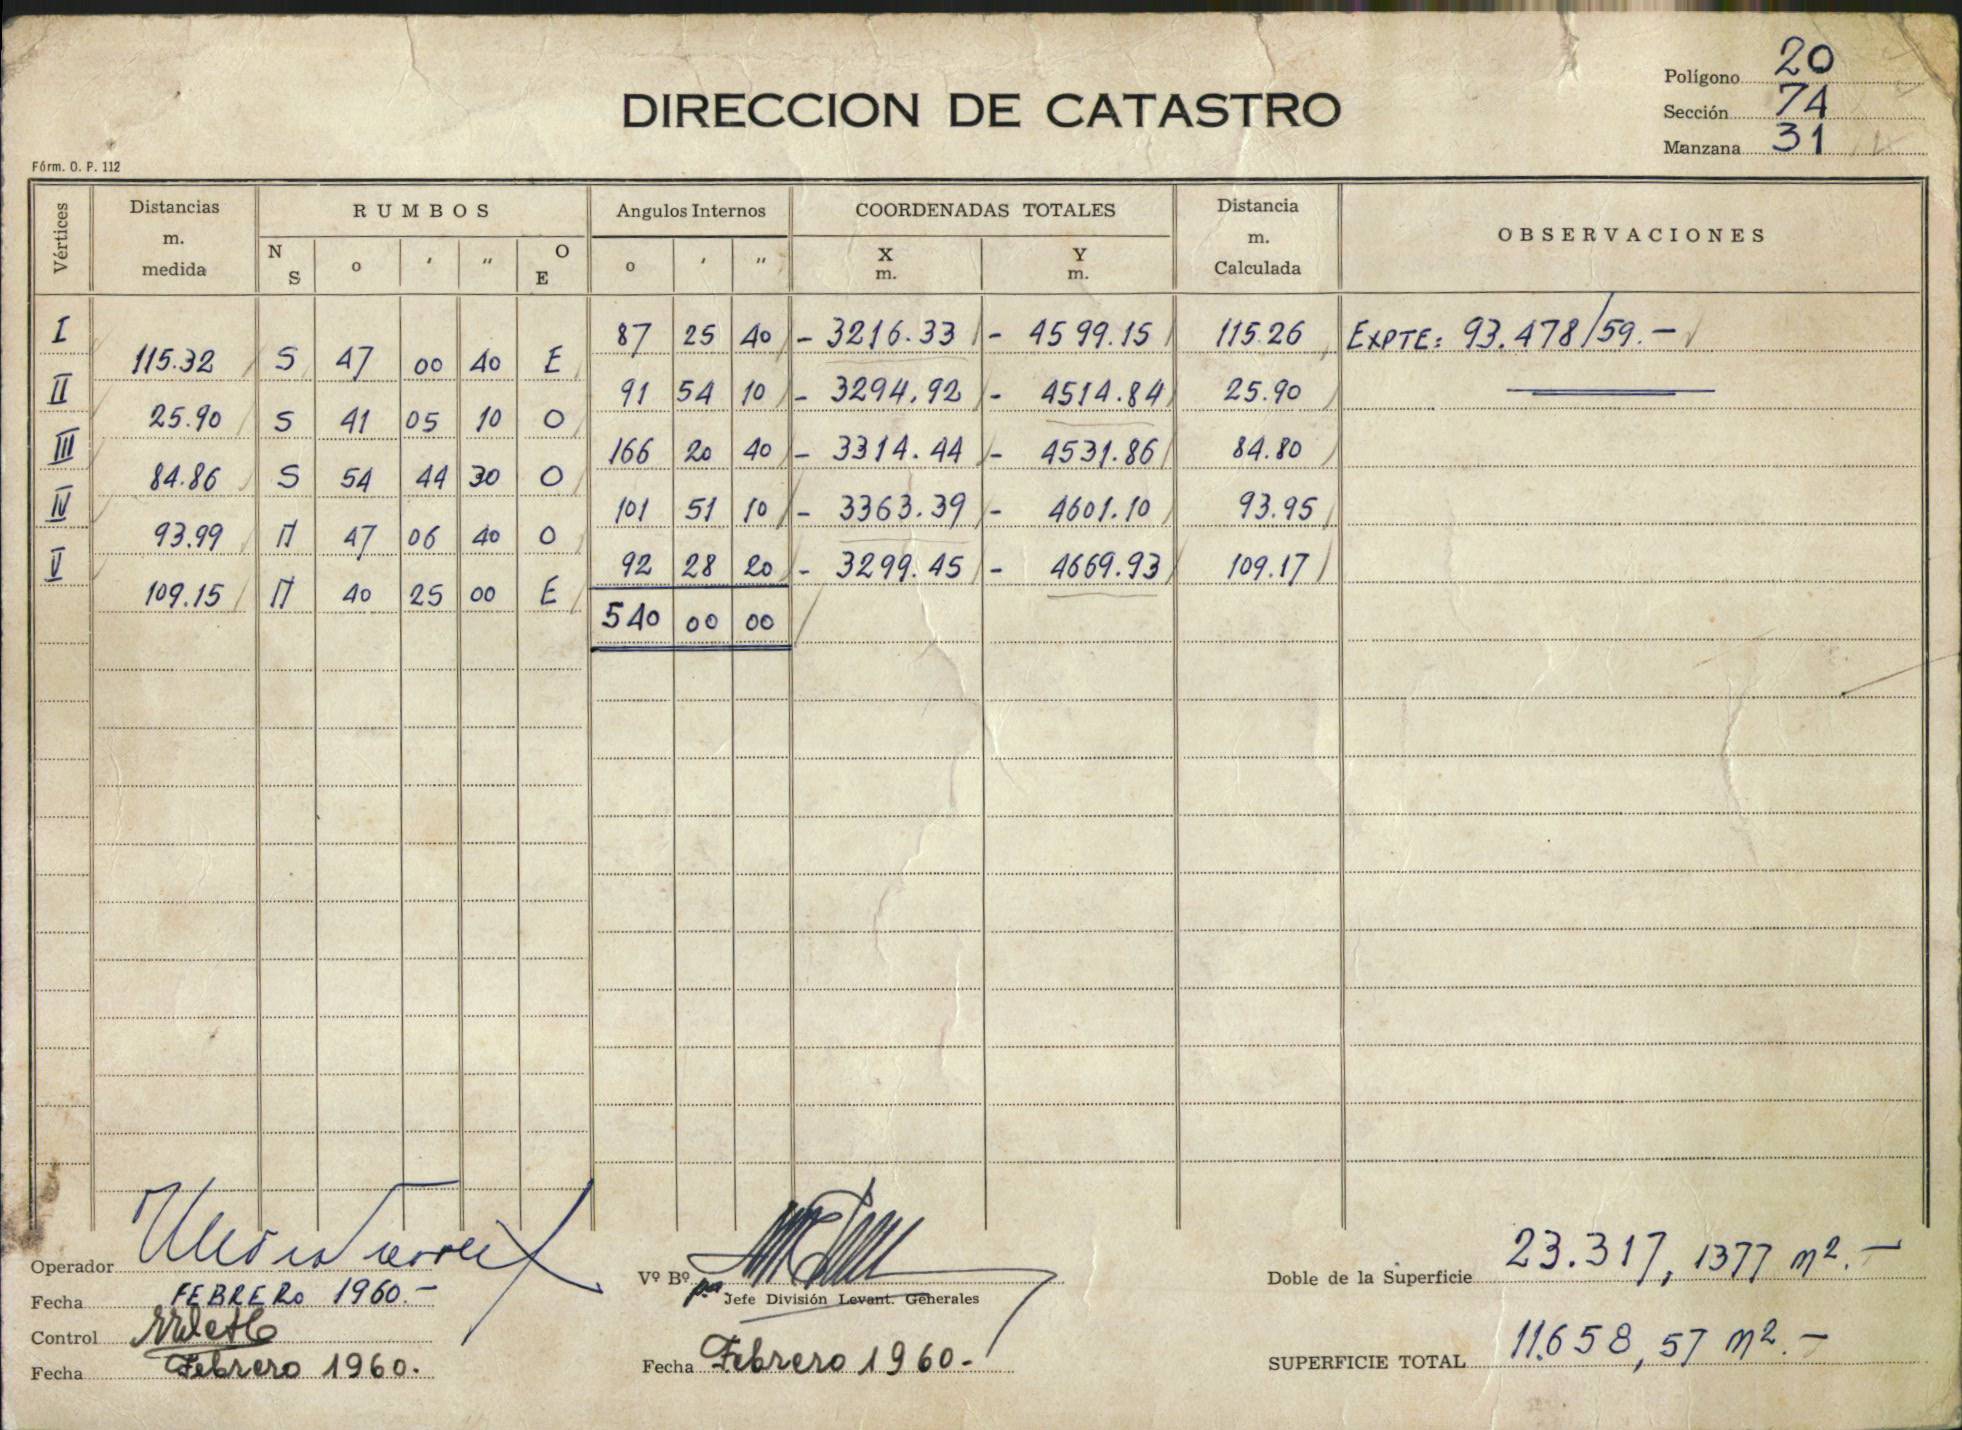 Polígono 20
DIRECCION DE CATASTRO
Sección 74
Manzana 31
Fórm. O. P. 112
Vértices
Distancias m. medida
RUMBOS
Angulos Internos
COORDENADAS TOTALES
Distancia m. Calculada
OBSERVACIONES
N S o ′ ″ O E
o ′ ″
X m.
Y m.
I 87 25 40 - 3216.33 - 4599.15 115.26 EXPTE: 93.478/59.-
115.32 S 47 00 40 E
II 91 54 10 - 3294.92 - 4514.84 25.90
25.90 S 41 05 10 O
III 166 20 40 - 3314.44 - 4531.86 84.80
84.86 S 54 44 30 O
IV 101 51 10 - 3363.39 - 4601.10 93.95
93.99 N 47 06 40 O
V 92 28 20 - 3299.45 - 4669.93 109.17
109.15 N 40 25 00 E
540 00 00
Operador
Fecha FEBRERO 1960.-
Control
Fecha Febrero 1960.
Vº Bº
Jefe División Levant. Generales
Fecha Febrero 1960-
Doble de la Superficie 23.317,1377 m2.-
SUPERFICIE TOTAL 11.658,57 m2.-